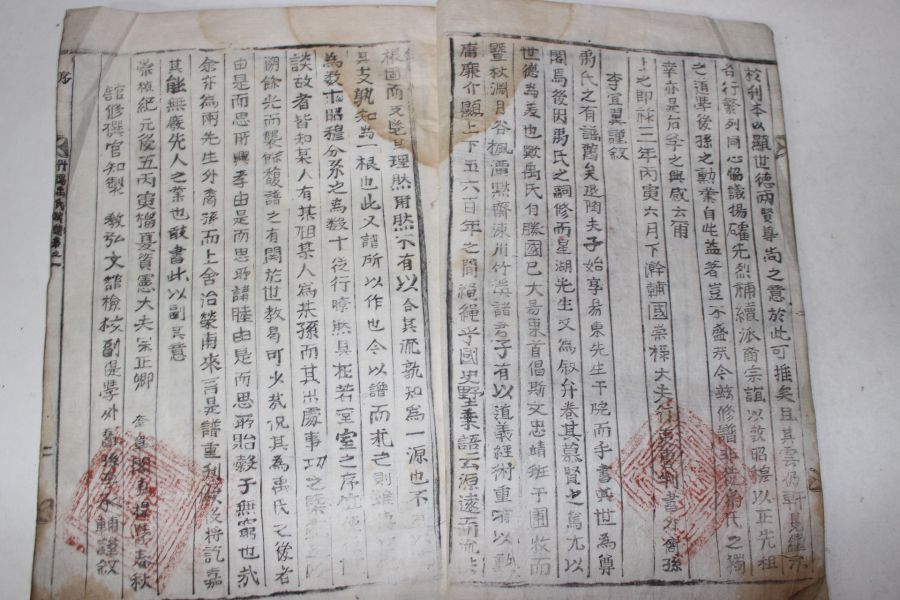 於利本以顯世德而賢尊尚之意於此可推矣且其雲仍
各行繁列同心協議揚先烈 續派裔宗誼以敦昭穆以正先祖
之道學後孫之勳業自此益著豈不盛哉今玆修譜非徒禹氏之獨
幸亦是后學之興感云爾
上之卽祚三年丙寅六月下澣輔國崇祿大夫行 判書外裔孫
李宜翼謹敘
禹氏之有譜舊矣丞陶夫子始享易東先生于院而手書其世爲尊
閣焉後因禹氏之詞修而星湖先生又爲敘弁卷其慕賢之篤尤以
世德爲差也歟禹氏自勝國已大易東首倡斯文忠靖班于圃牧而
曁秋淵月谷楓 默齋涑川竹溪諸君子有以道義經術重有以勳
庸廉介顯上下五六百年之間繩繩乎國史野乘語云源遠而流
根固而支 其理然用然不有以合其流孰知爲一源也不
其支孰知爲一根也此又譜所以作也今以譜而求之則雖
爲數十昭穆分系之爲數十從行瞭然具在若堂室之序
談故者皆知某人有某祖某人爲某孫而其出處事功之
閥餘光而襲餘馥譜之有關於世敎曷可少哉況其爲禹氏之後者
由是而思所興孝由是而思所講睦由是而思所貽穀于無窮也哉
余亦爲兩先生外裔孫而上舍治榮甫來言是譜重刊 後將訖嘉
其能無廢先人之業也敢書此以副其意
崇禎紀元後五丙寅榴夏資憲大夫宗正卿 奎章閣 提學春秋
館修撰官知製 敎弘文館檢校副提學外裔孫 永輔謹敘
序
丹陽禹氏族譜卷之一
二